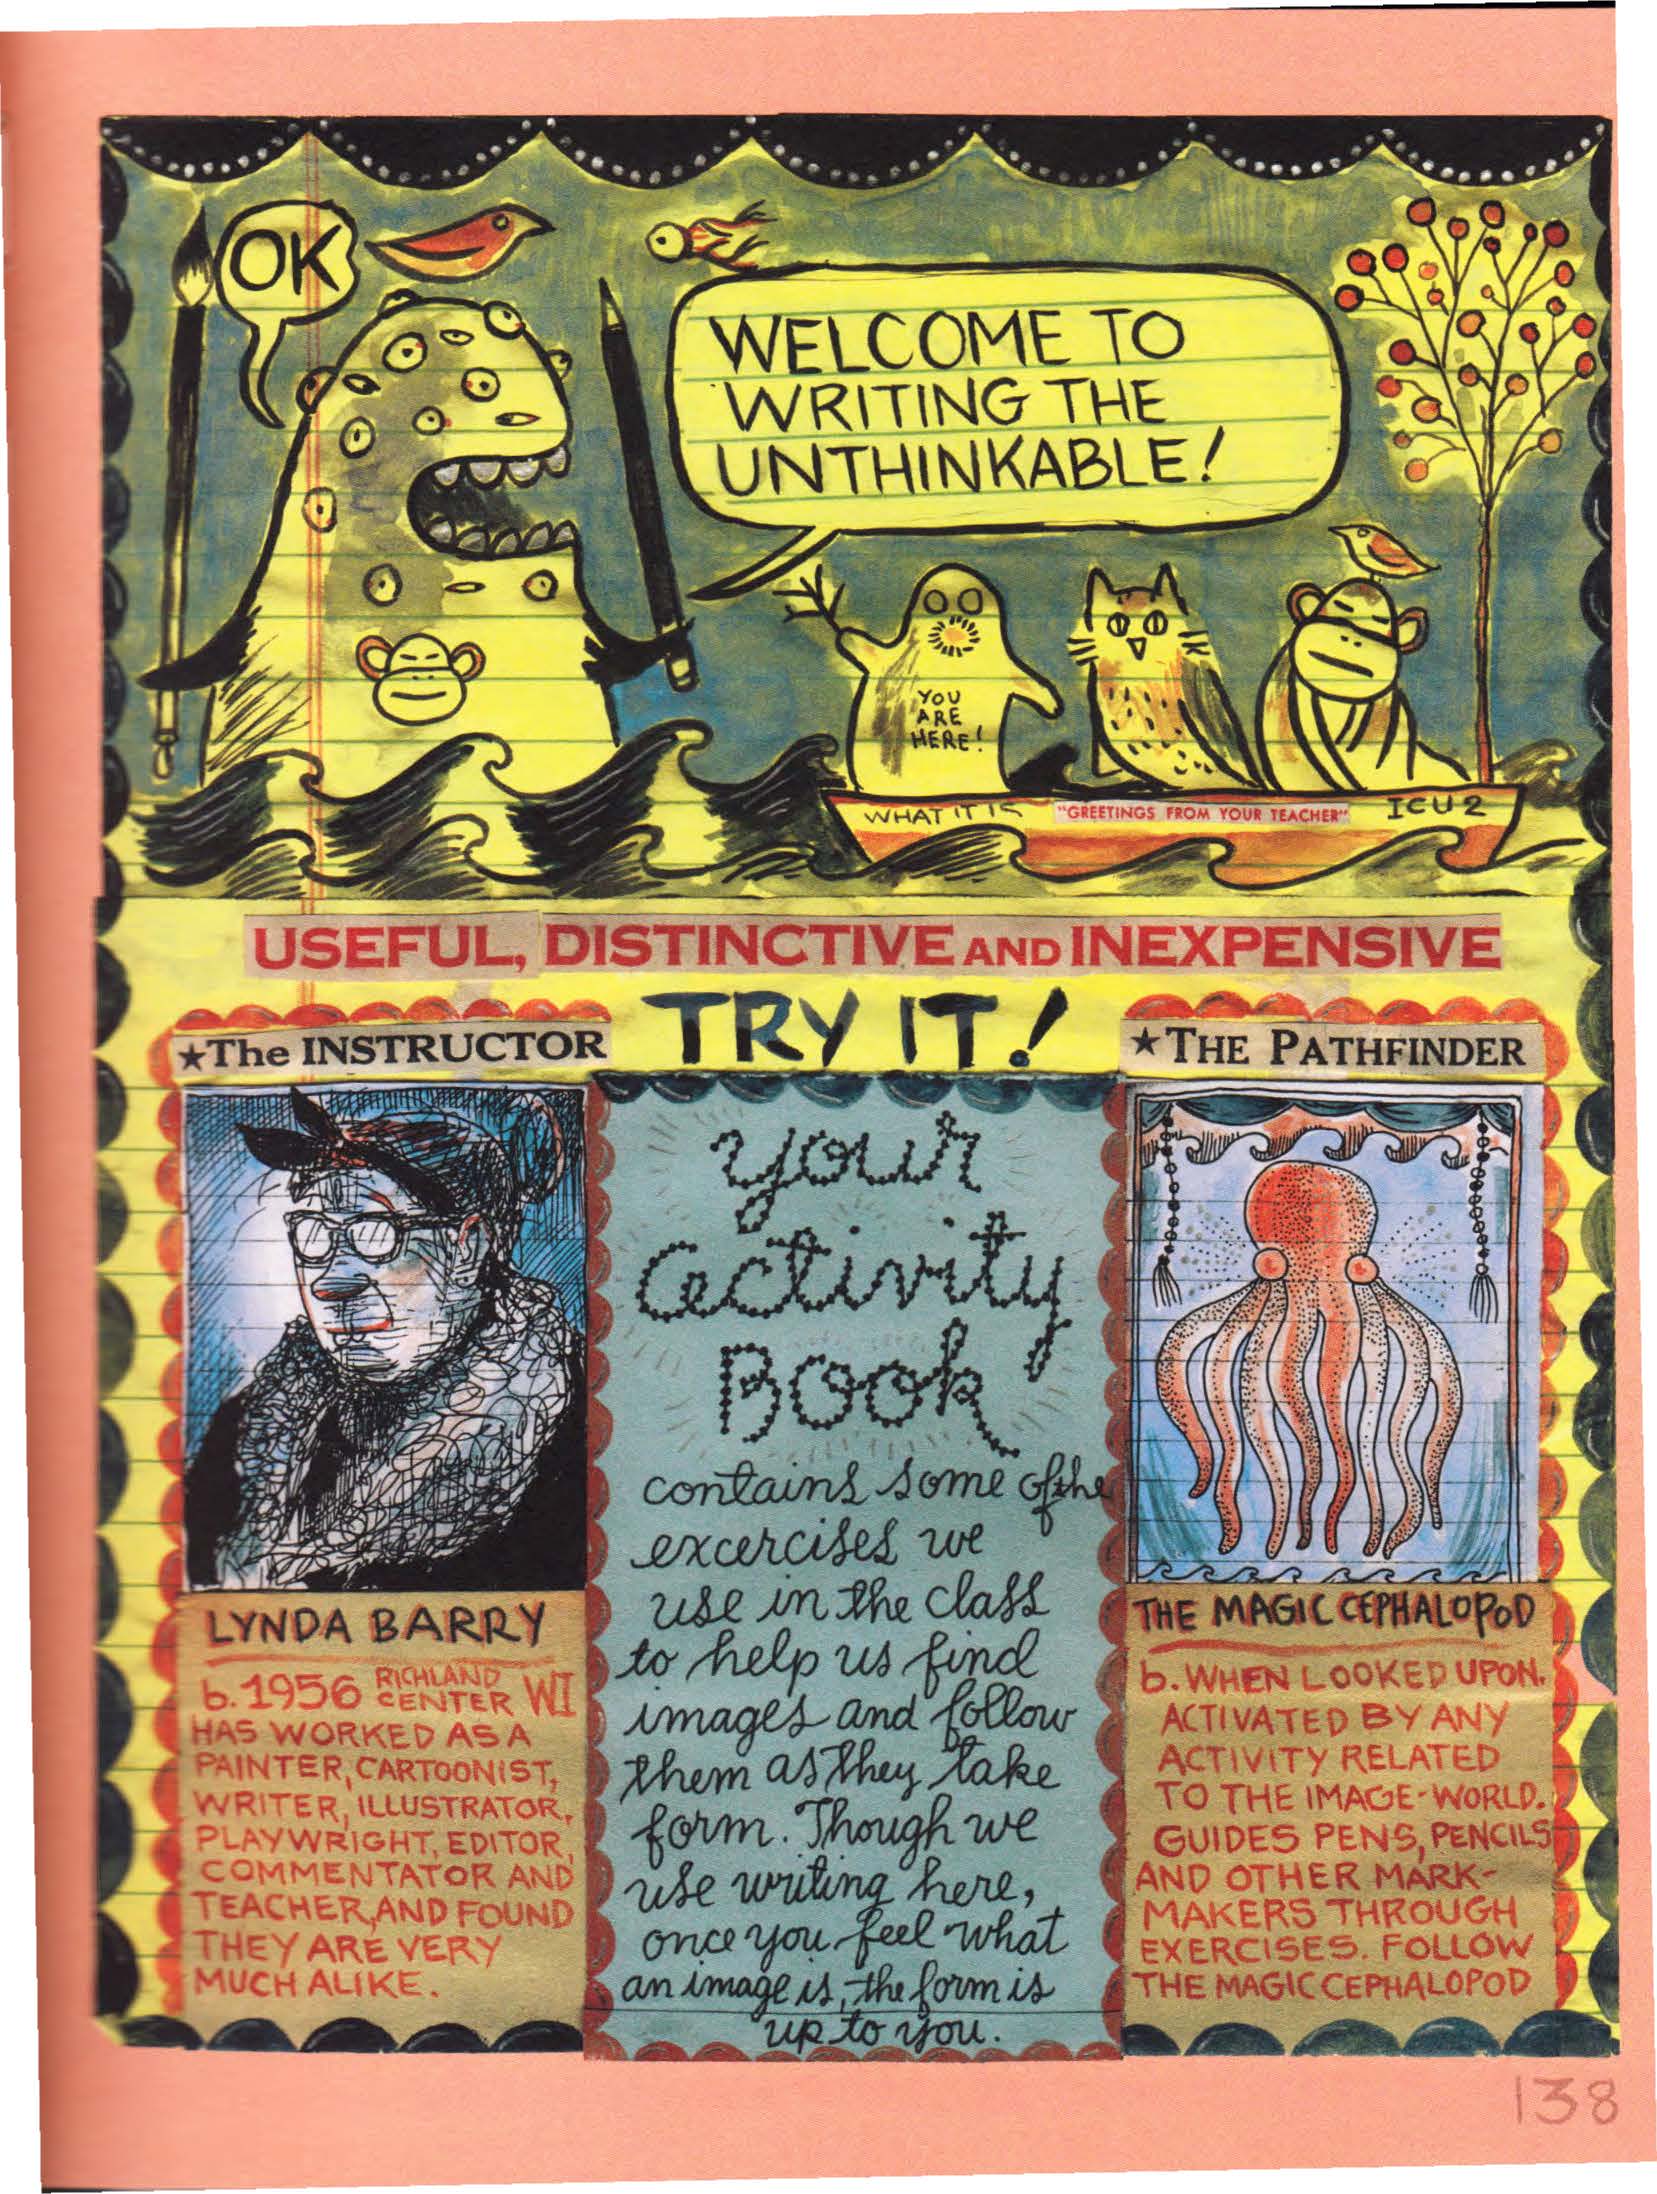 OK
WELCOME TO
WRITING THE
UNTHINKABLE!
YOU
ARE
HERE!
WHAT IT IS
"GREETINGS FROM YOUR TEACHER"
ICU2
USEFUL, DISTINCTIVE AND INEXPENSIVE
TRY IT!
★The INSTRUCTOR
LYNDA BARRY
b. 1956 RICHLAND CENTER WI
HAS WORKED AS A
PAINTER, CARTOONIST,
WRITER, ILLUSTRATOR,
PLAYWRIGHT, EDITOR,
COMMENTATOR AND
TEACHER, AND FOUND
THEY ARE VERY
MUCH ALIKE.
your
activity
BOOK
contains some of the
excercises we
use in the class
to help us find
images and follow
them as they take
form. Though we
use writing here,
once you feel what
an image is, the form is
up to you.
★THE PATHFINDER
THE MAGIC CEPHALOPOD
b. WHEN LOOKED UPON.
ACTIVATED BY ANY
ACTIVITY RELATED
TO THE IMAGE-WORLD.
GUIDES PENS, PENCILS
AND OTHER MARK-
MAKERS THROUGH
EXERCISES. FOLLOW
THE MAGIC CEPHALOPOD
138